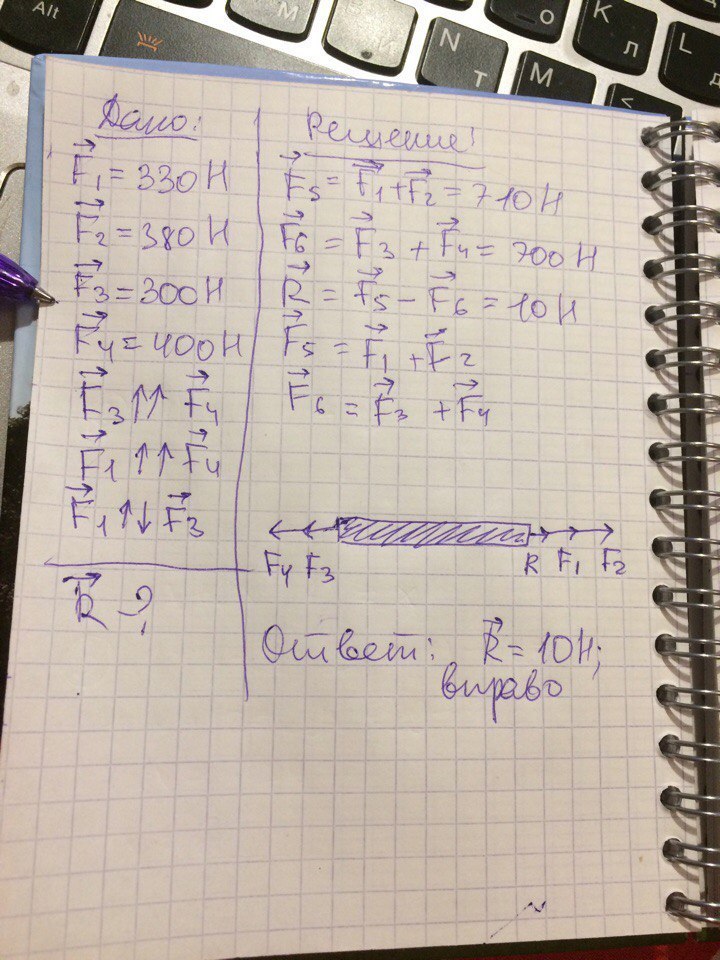 Alt
М
И
N
Т
М
О
К
Л
L
Д
<
Дано:
F₁ = 330 Н
F₂ = 380 Н
F₃ = 300 Н
F₄ = 400 Н
F₃ ↑↑ F₄
F₁ ↑↑ F₄
F₁ ↑↓ F₃
R - ?
Решение:
F₅ = F₁ + F₂ = 710 Н
F₆ = F₃ + F₄ = 700 Н
R = F₅ - F₆ = 10 Н
F₅ = F₁ + F₂
F₆ = F₃ + F₄
F₄ F₃ R F₁ F₂
Ответ: R = 10 Н;
вправо